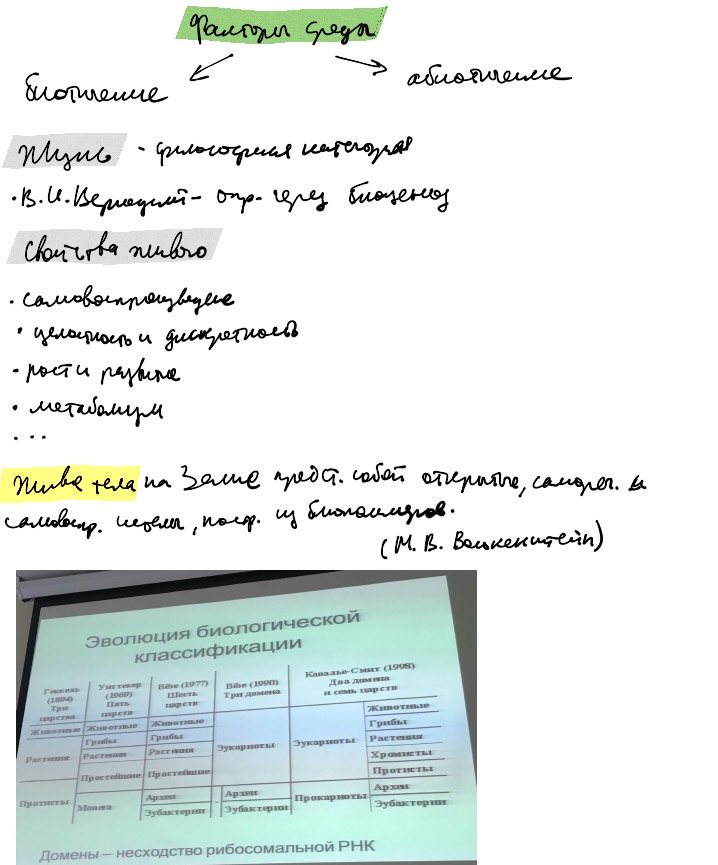 Факторы среды
биотические
абиотические
Жизнь - философская категория
• В.И.Вернадский - опр. через биоценоз
Свойства живого
• самовоспроизведение
• целостность и дискретность
• рост и развитие
• метаболизм
• ...
Живые тела на Земле предст. собой открытые, саморег. и
самовоспр. системы, постр. из биополимеров.
(М. В. Волькенштейн)
Эволюция биологической
классификации
Геккель (1894) Три царства
Уиттекер (1969) Пять царств
Вёзе (1977) Шесть царств
Вёзе (1990) Три домена
Кавалье-Смит (1998) Два домена и семь царств
Животные Животные Животные Эукариоты Эукариоты Животные
Растения Грибы Грибы Грибы
Растения Растения Растения
Хромисты
Простейшие Простейшие Протисты
Протисты Monera Археи Археи Прокариоты Археи
Эубактерии Эубактерии Эубактерии
Домены – несходство рибосомальной РНК